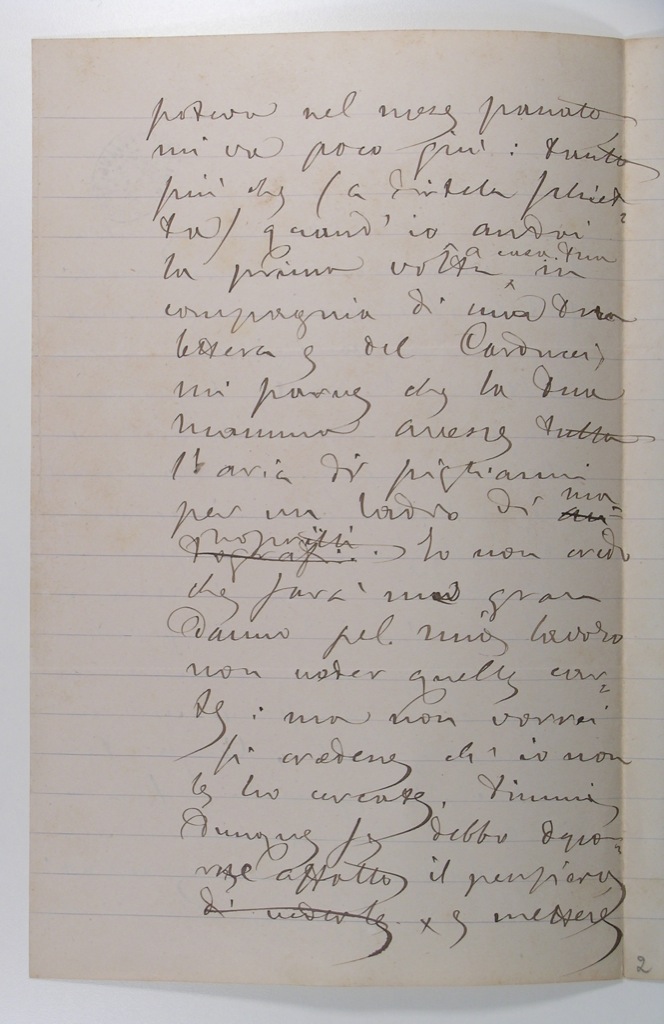 poteva nel mese passato,
mi va poco giù: tanto
più che (a dirtela schiet=
ta) quand' io andai
la prima volta a casa tua in
compagnia di una tua
lettera e del Carducci,
mi parve che la tua
mamma avesse tutta
l'aria di pigliarmi
per un ladro di ma=
noscritti... Io non credo
che sarà un gran
danno pel mio lavoro
non veder quelle car=
te: ma non vorrei
si credesse ch' io non
le ho cercate. Dimmi
dunque se debbo depor=
ne affatto il pensiero
di vederle. x e mettere
2